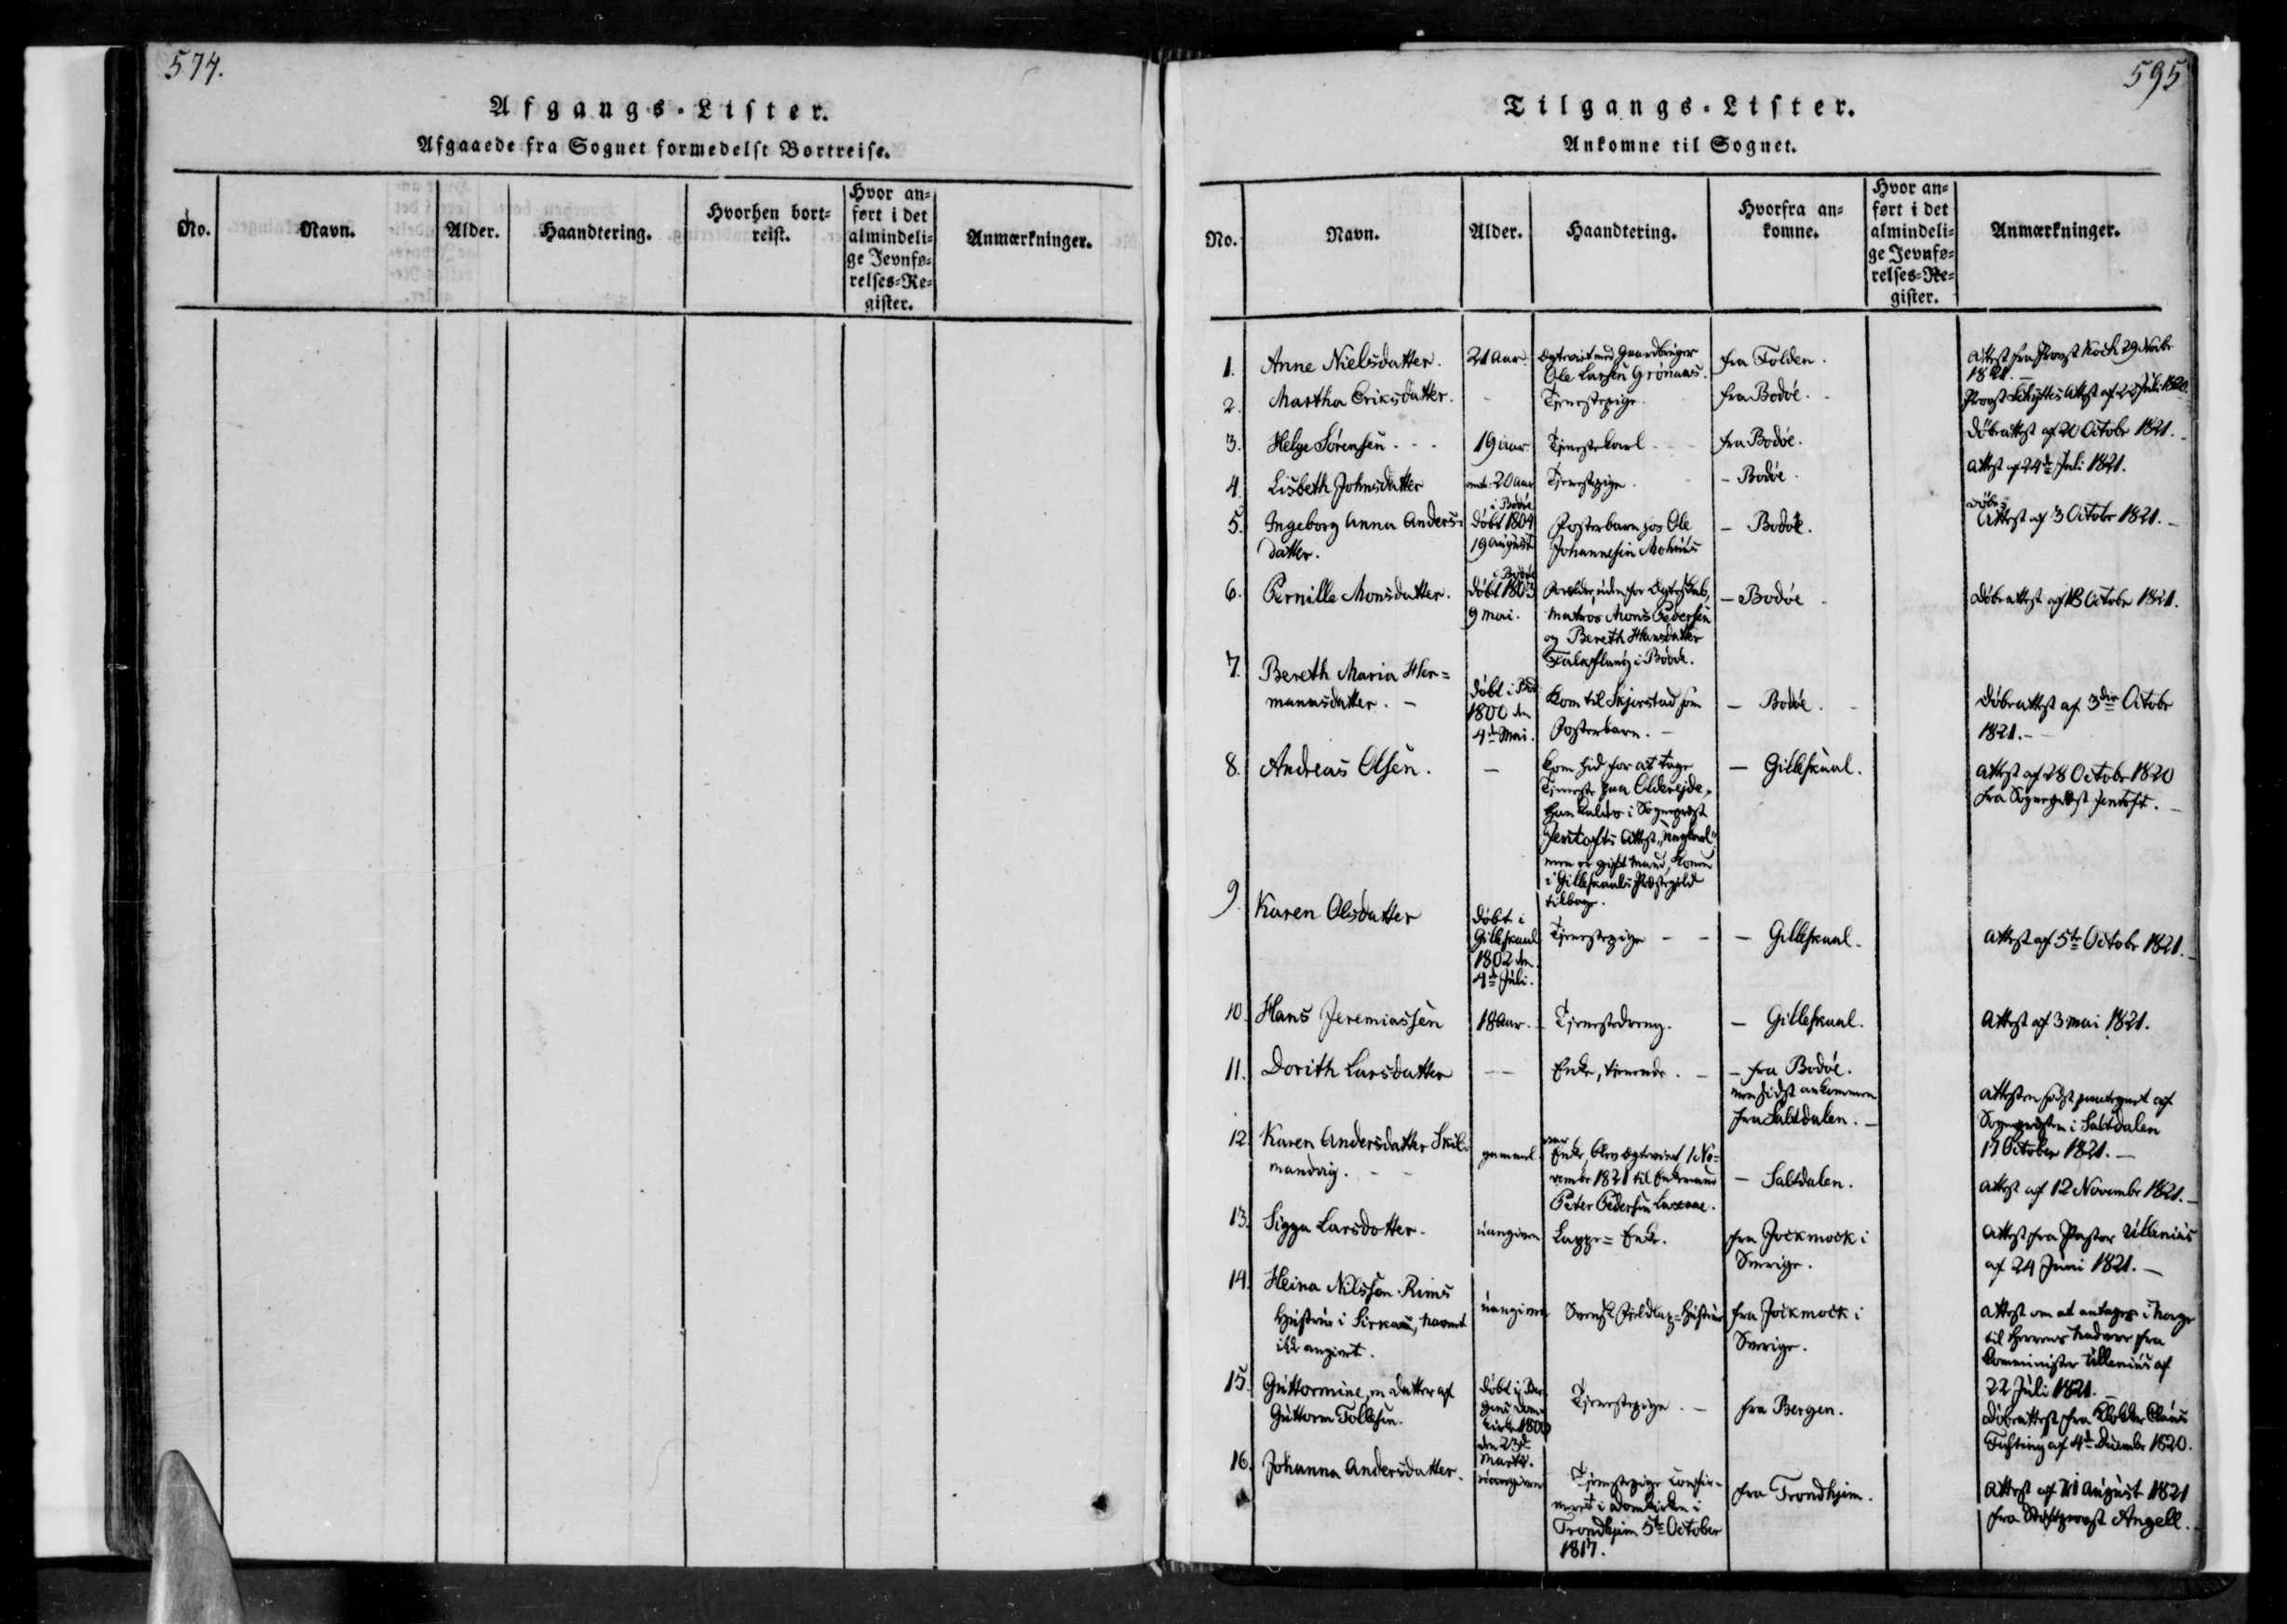 574.
Afgangs-Lister.
Afgaaede fra Sognet formedelst Bortreise.
No.
Navn.
Alder.
Haandtering.
Hvorhen bort-
reist.
Hvor an-
ført i det
almindeli-
ge Jevnfø-
relses-Re-
gister.
Anmærkninger.
595
Tilgangs-Lister.
Ankomne til Sognet.
No.
Navn.
Alder.
Haandtering.
Hvorfra an-
komne.
Hvor an-
ført i det
almindeli-
ge Jevnfø-
relses-Re-
gister.
Anmærkninger.
1. Anne Nielsdatter.
21 Aar.
Ole Larsen Grönaas.
fra Folden.
Attest fra Provst Koch 29 Novbr
1821.
2. Martha Eriksdatter.
Tjenestepige.
fra Bodöe.
Provst Schyttes Attest af 22 Juli 1820.
3. Helge Sörensen.
19 aar.
Tjenestekarl
fra Bodöe.
Döbeattest af 20 Octobr 1821.
4. Lisbeth Johnsdatter
omtr. 20 aar
Tjenestepige.
- Bodöe.
Attest af 24de Juli 1821.
5. Ingeborg Anna Anders-
datter.
i Bodöe
döbt 1804
19 August
Fosterbarn hos Ole
Johannesen
- Bodöe.
Döbe-
Attest af 3 Octobr 1821.
6. Pernille Monsdatter.
i Bodöe
döbt 1803
9 Mai.
Forældre, udenfor Ægteskab,
Matros Mons Pedersen
og Bereth Hansdatter
i Bodöe.
- Bodöe
Döbeattest af 18 Octobr 1821.
7. Bereth Maria Her-
mannsdatter.
döbt i Bod.
1800 den
4de Mai.
Kom til Skjerstad som
Fosterbarn.
- Bodöe.
Döbeattest af 3die Octobr
1821.
8. Andreas Olsen.
-
kom hid for at tage
Tjeneste paa Oldereide,
han kaldes i Sognepræst
Jentofts Attest "Ungkarl"
men er gift Mand, Konen
i Gilleskaals Præstegield
tilbage.
- Gilleskaal.
Attest af 28 Octobr 1820
fra Sognepræst Jentoft.
9. Karen Olsdatter
döbt i
Gilleskaal
1802 den
4de Juli.
Tjenestepige
- Gilleskaal.
Attest af 5te Octobr 1821.
10. Hans Jeremiassen
18 Aar.
Tjenestedreng.
- Gilleskaal.
Attest af 3 Mai 1821.
11. Dorith Larsdatter
Enke, tienende.
- fra Bodöe.
men sidst ankommen
fra Saltdalen.
Attesten sidst paategnet af
Sognepræsten i Saltdalen
17 October 1821.
12. Karen Andersdatter Skil-
mandvig.
gammel
var
Enke, blev ægteviet 1 No-
vember 1821 til Enkemand
Peter Pedersen
- Saltdalen.
Attest af 12 November 1821.
13. Sigga Larsdotter.
uangiven
Lappe-Enke.
fra Jockmock i
Sverige.
Attest fra Pastor Ullenius
af 24 Juni 1821.
14. Heina Nilsson Rims
Hustrue i Sirkas, Navnet
ikke angivet.
uangiven
Svensk Fieldlap-Hustrue
fra Jockmock i
Sverige.
Attest om at antages i Norge
til Herrens Nadvere fra
Comminister Ullenius af
22 Juli 1821.
15. Guttormine, en Datter af
Guttorm Tollefsen.
döbt i Ber-
gens Dom-
kirke 1800
den 23de
Marts.
Tjenestepige.
fra Bergen.
Döbeattest fra Klokker Claus
Fasting af 4de December 1820.
16. Johanna Andersdatter.
uangiven
Tjenestepige confir-
meret i Domkirken i
Trondhjem 5te October
1817.
fra Trondhjem.
Attest af 11 August 1821
fra Stiftprovst Angell.